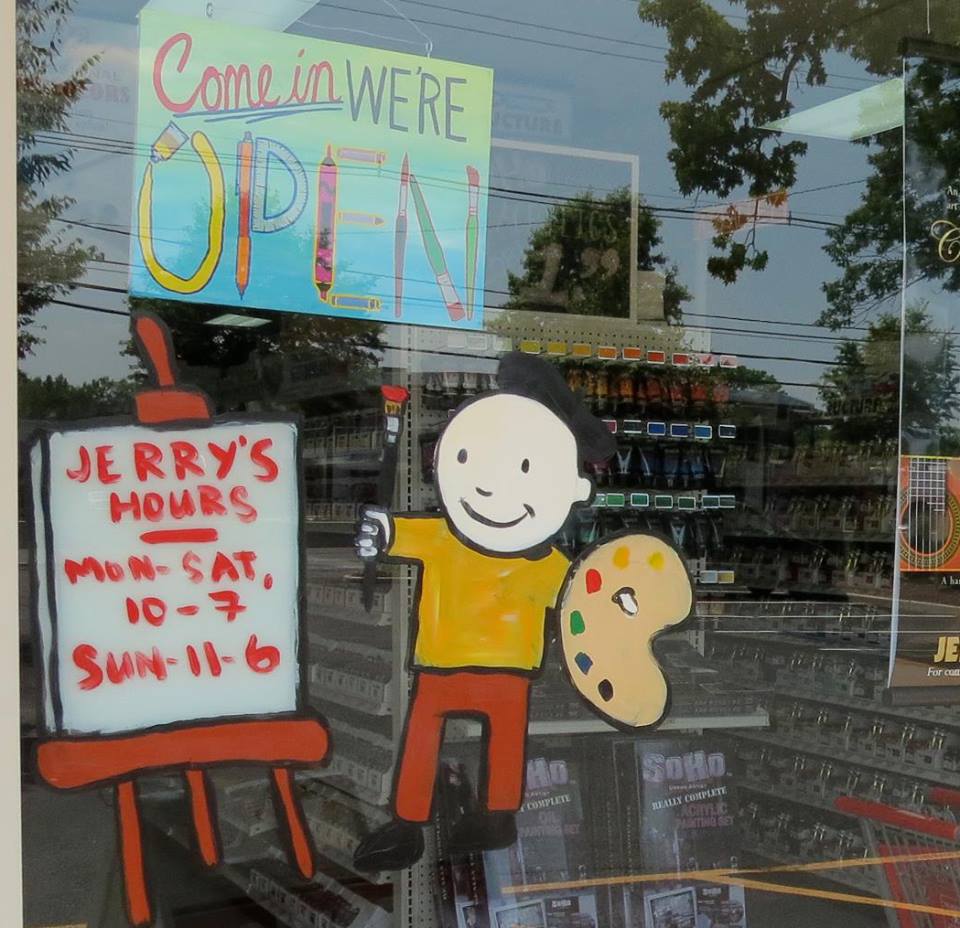 Come in WE'RE
OPEN
JERRY'S
HOURS
MON-SAT,
10-7
SUN-11-6
SoHo
REALLY COMPLETE
ACRYLIC
PAINTING SET
COMPLETE
OIL
PAINTING SET
An
art
A ha
JE
For com